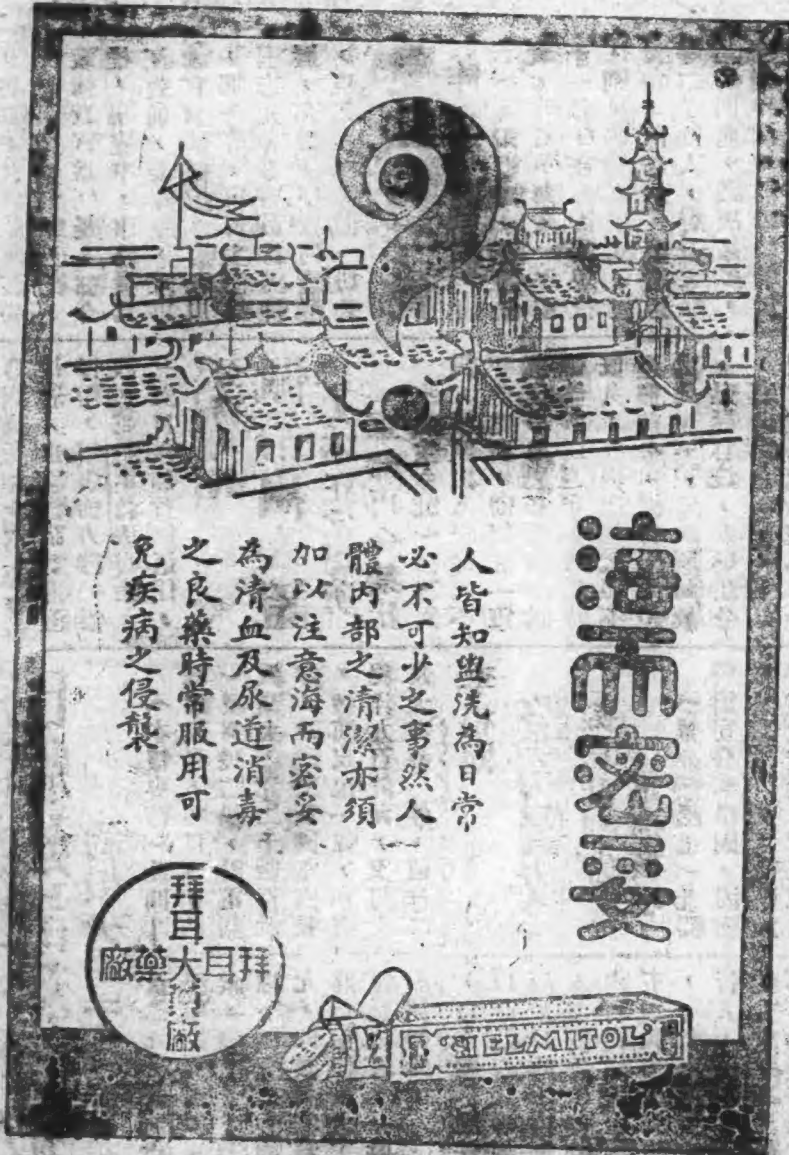 海而密妥
人皆知盥洗為日常
必不可少之事然人
體內部之清潔亦須
加以注意海而密妥
為清血及尿道消毒
之良藥時常服用可
免疾病之侵襲
拜耳大藥廠
拜耳大藥廠
HELMITOL